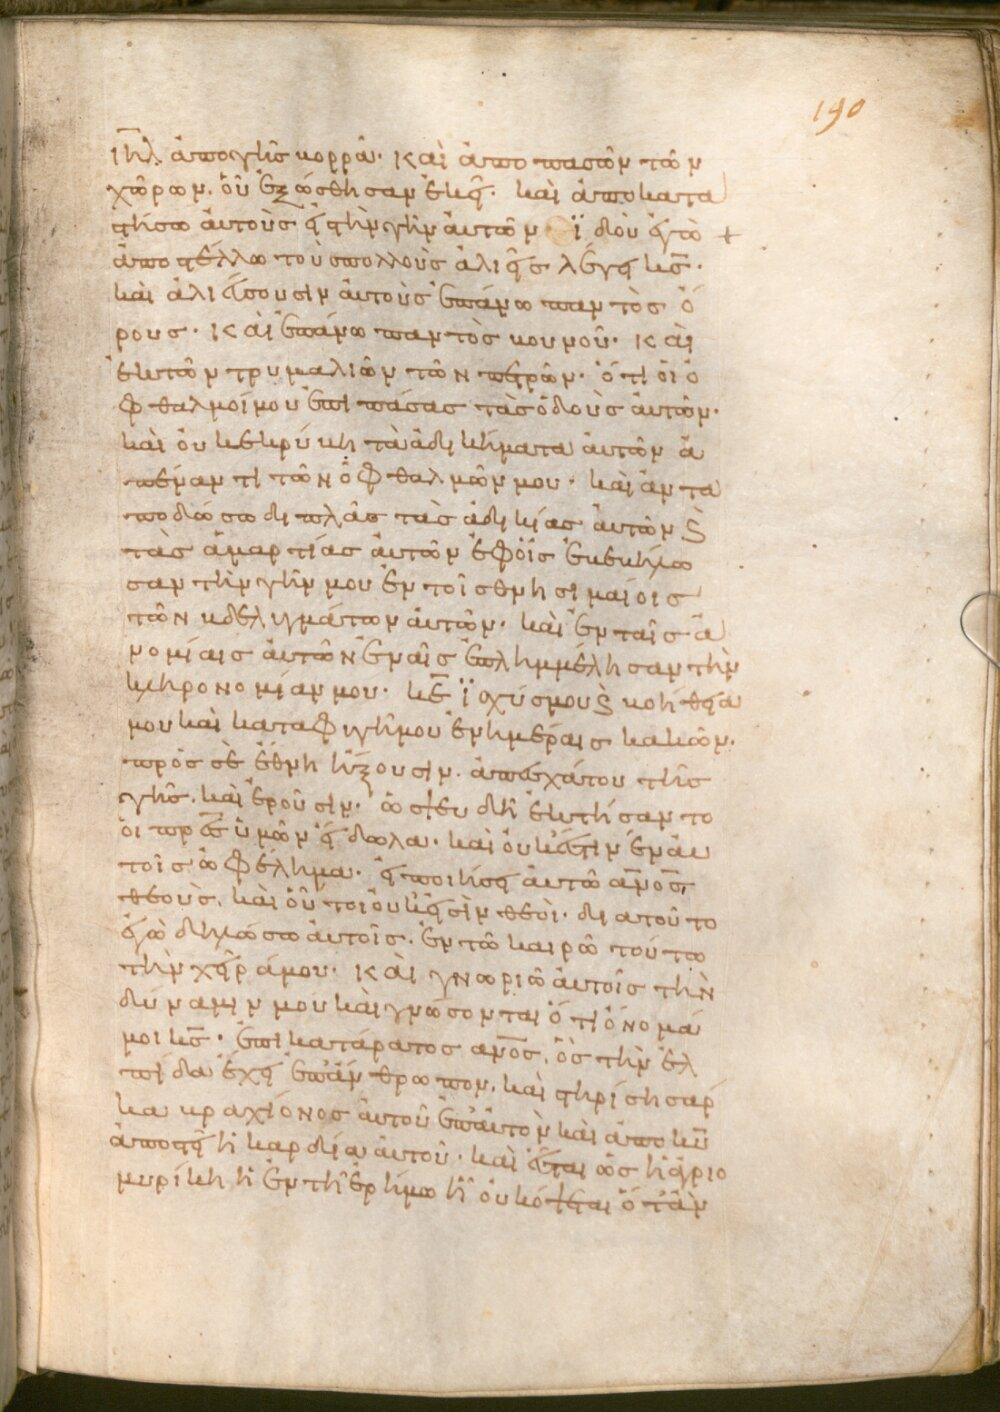 ι̅η̅λ̅ ἀπο γῆς βορρᾶ· καὶ ἀπο πασῶν τῶν
χώρων. οὗ ἐξώσθησαν ἐκεῖ· καὶ ἀποκατα
στήσω ἀυτοὺς εἰς τὴν γῆν ἀυτῶν· ϊδοὺ ἐγὼ +
ἀποστέλλω τοὺς πολλοὺς ἁλιεῖς λέγει κ̅ς̅·
καὶ ἁλιεύσουσιν ἀυτοὺς ἐπάνω παντὸς ὄ
ρους· καὶ ἐπάνω παντὸς βουνοῦ· καὶ
ἐκ τῶν τρυμαλιῶν τῶν πετρῶν· ὅτι οἱ ὀ
φθαλμοί μου ἐπι πάσας τὰς ὁδοὺς ἀυτῶν·
καὶ οὐ κεκρύβη τὰ ἀδικήματα ἀυτῶν ἀ
πέναντι τῶν ὀφθαλμῶν μου· καὶ ἀντα
ποδώσω διπλᾶς τὰς ἀδικίας ἀυτῶν ϗ
τὰς ἁμαρτίας ἀυτῶν ἐφ οἷς ἐβεβήλω
σαν τὴν γῆν μου ἐν τοῖς θνησιμαίοις
τῶν βδελυγμάτων ἀυτῶν· καὶ ἐν ταῖς ἀ
νομίαις ἀυτῶν ἐν αἷς ἐπλημμέλησαν τὴν
κληρονομίαν μου· κ̅ε̅ ϊσχύς μου ϗ βοήθεια
μου καὶ καταφυγή μου ἐν ἡμέραις κακῶν·
πρὸς σὲ ἔθνη ἥξουσιν. ἀπεσχάτου τῆς
γῆς. καὶ ἐροῦσιν· ὡς ψευδῆ ἐκτήσαντο
οἱ π̅ρ̅ε̅ς̅ ὑμῶν εἴδωλα· καὶ οὐκ ἔστιν ἐν ἀυ
τοῖς ὠφέλημα· εἰ ποιήσει ἀυτῶ α̅ν̅ο̅ς̅
θεοὺς. καὶ οὗτοι οὐκ εἰσὶν θεοὶ· δια τοῦτο
ἐγὼ δηλώσω ἀυτοῖς. ἐν τῶ καιρῶ τούτω
τὴν χεῖρά μου· καὶ γνωριῶ ἀυτοῖς τὴν
δύναμιν μου καὶ γνώσονται ὅτι ὄνομά
μοι κ̅ς̅· ἐπικατάρατος α̅ν̅ο̅ς̅. ὃς τὴν ἐλ
πίδα ἔχει ἐπ ἄνθρωπον. καὶ στηρίση σάρ
κα βραχίονος ἀυτοῦ ἐπ ἀυτὸν καὶ ἀπο κ̅υ̅
ἀποστῆ ἡ καρδία ἀυτοῦ· καὶ ἔσται ὡς ἡ ἀγριο
μυρίκη ἡ ἐν τῆ ἐρήμω ἣ οὐκ ὄψεται ὅταν
190